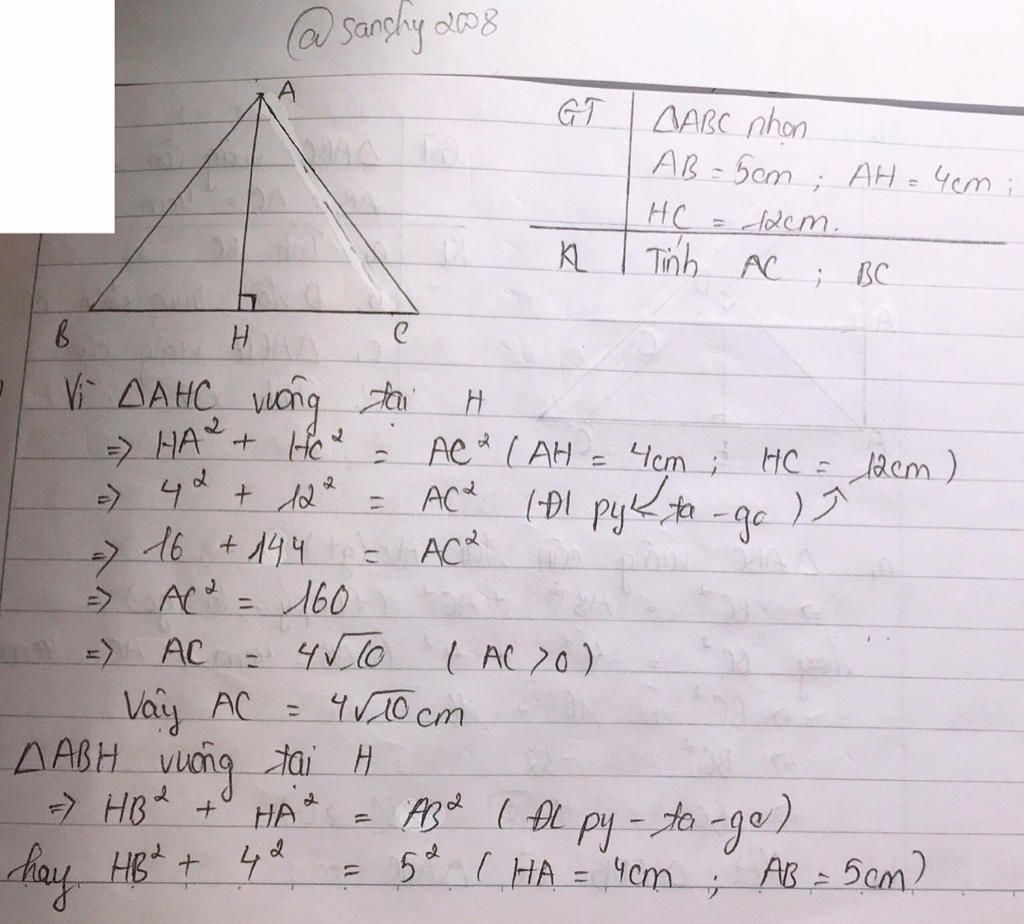 @sanchy2008
A
B
H
C
GT
ΔABC nhọn
AB = 5cm ; AH = 4cm ;
HC = 12cm.
KL
Tính AC ; BC
Vì ΔAHC vuông tại H
=> HA² + HC² = AC² ( AH = 4cm ; HC = 12cm )
=> 4² + 12² = AC² (Đl py - ta - go )
=> 16 + 144 = AC²
=> AC² = 160
=> AC = 4√10 ( AC > 0 )
Vậy AC = 4√10 cm
ΔABH vuông tại H
=> HB² + HA² = AB² ( ĐL py - ta - go )
hay HB² + 4² = 5² ( HA = 4cm ; AB = 5cm )